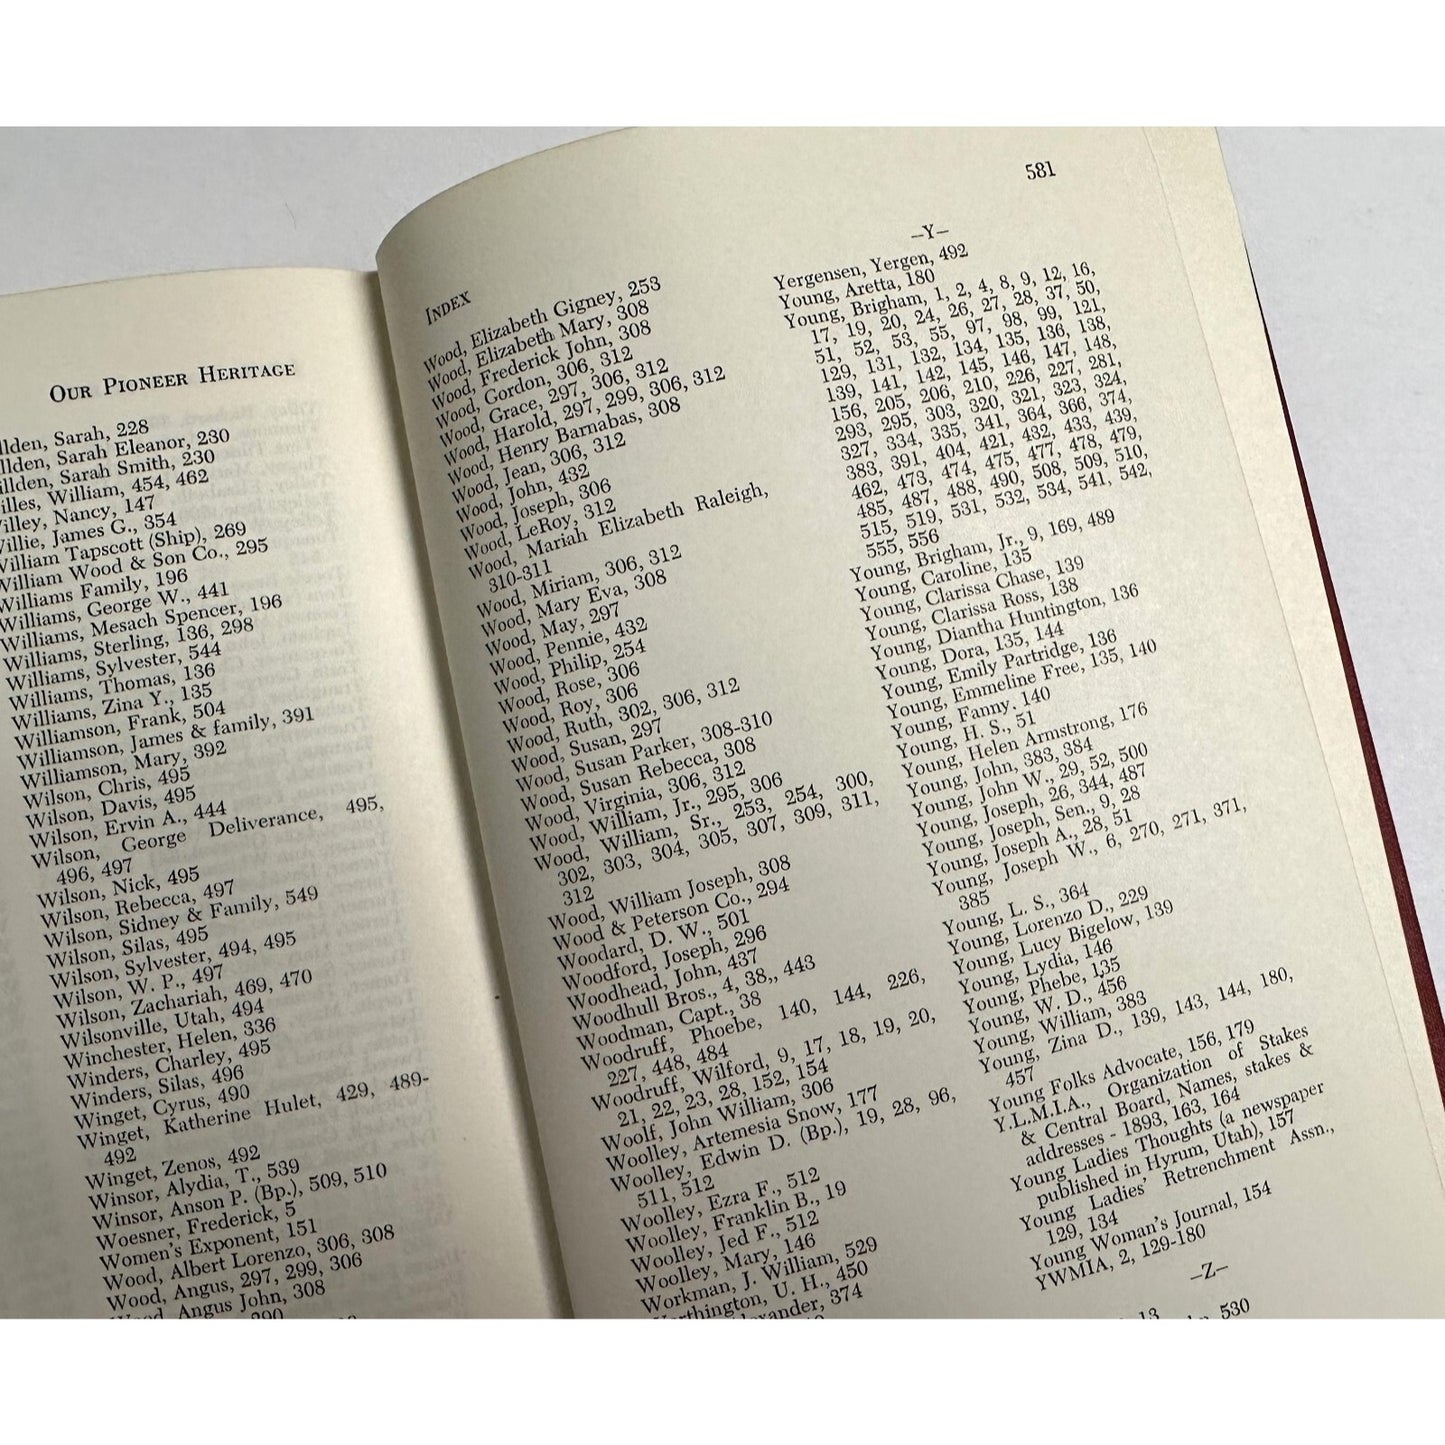 OUR PIONEER HERITAGE
Sarah, 228
Sarah Eleanor, 230
Sarah Smith, 230
William, 454, 462
Nancy, 147
James G., 354
William Tapscott (Ship), 269
William Wood & Son Co., 295
Williams Family, 196
Williams, George W., 441
Williams, Mesach Spencer, 196
Williams, Sterling, 136, 298
Williams, Sylvester, 544
Williams, Thomas, 136
Williams, Zina Y., 135
Williamson, Frank, 504
Williamson, James & family, 391
Williamson, Mary, 392
Wilson, Chris, 495
Wilson, Davis, 495
Wilson, Ervin A., 444
Wilson, George Deliverance, 495,
496, 497
Wilson, Nick, 495
Wilson, Rebecca, 497
Wilson, Sidney & Family, 549
Wilson, Silas, 495
Wilson, Sylvester, 494, 495
Wilson, W. P., 497
Wilson, Zachariah, 469, 470
Wilsonville, Utah, 494
Winchester, Helen, 336
Winders, Charley, 495
Winders, Silas, 496
Winget, Cyrus, 490
Winget, Katherine Hulet, 429, 489-
492
Winget, Zenos, 492
Winsor, Alydia, T., 539
Winsor, Anson P. (Bp.), 509, 510
Woesner, Frederick, 5
Women's Exponent, 151
Wood, Albert Lorenzo, 306, 308
Wood, Angus, 297, 299, 306
Wood, Angus John, 308
INDEX
581
Wood, Elizabeth Gigney, 253
Wood, Elizabeth Mary, 308
Wood, Frederick John, 308
Wood, Gordon, 306, 312
Wood, Grace, 297, 306, 312
Wood, Harold, 297, 299, 306, 312
Wood, Henry Barnabas, 308
Wood, Jean, 306, 312
Wood, John, 432
Wood, Joseph, 306
Wood, LeRoy, 312
Wood, Mariah Elizabeth Raleigh,
310-311
Wood, Miriam, 306, 312
Wood, Mary Eva, 308
Wood, May, 297
Wood, Pennie, 432
Wood, Philip, 254
Wood, Rose, 306
Wood, Roy, 306
Wood, Ruth, 302, 306, 312
Wood, Susan, 297
Wood, Susan Parker, 308-310
Wood, Susan Rebecca, 308
Wood, Virginia, 306, 312
Wood, William, Jr., 295, 306
Wood, William, Sr., 253, 254, 300,
302, 303, 304, 305, 307, 309, 311,
312
Wood, William Joseph, 308
Wood & Peterson Co., 294
Woodard, D. W., 501
Woodford, Joseph, 296
Woodhead, John, 437
Woodhull Bros., 4, 38,, 443
Woodman, Capt., 38
Woodruff, Phoebe, 140, 144, 226,
227, 448, 484
Woodruff, Wilford, 9, 17, 18, 19, 20,
21, 22, 23, 28, 152, 154
Woolf, John William, 306
Woolley, Artemesia Snow, 177
Woolley, Edwin D. (Bp.), 19, 28, 96,
511, 512
Woolley, Ezra F., 512
Woolley, Franklin B., 19
Woolley, Jed F., 512
Woolley, Mary, 146
Workman, J. William, 529
Worthington, U. H., 450
374
—Y—
Yergensen, Yergen, 492
Young, Aretta, 180
Young, Brigham, 1, 2, 4, 8, 9, 12, 16,
17, 19, 20, 24, 26, 27, 28, 37, 50,
51, 52, 53, 55, 97, 98, 99, 121,
129, 131, 132, 134, 135, 136, 138,
139, 141, 142, 145, 146, 147, 148,
156, 205, 206, 210, 226, 227, 281,
293, 295, 303, 320, 321, 323, 324,
327, 334, 335, 341, 364, 366, 374,
383, 391, 404, 421, 432, 433, 439,
462, 473, 474, 475, 477, 478, 479,
485, 487, 488, 490, 508, 509, 510,
515, 519, 531, 532, 534, 541, 542,
555, 556
Young, Brigham, Jr., 9, 169, 489
Young, Caroline, 135
Young, Clarissa Chase, 139
Young, Clarissa Ross, 138
Young, Diantha Huntington, 136
Young, Dora, 135, 144
Young, Emily Partridge, 136
Young, Emmeline Free, 135, 140
Young, Fanny. 140
Young, H. S., 51
Young, Helen Armstrong, 176
Young, John, 383, 384
Young, John W., 29, 52, 500
Young, Joseph, 26, 344, 487
Young, Joseph, Sen., 9, 28
Young, Joseph A., 28, 51
Young, Joseph W., 6, 270, 271, 371,
385
Young, L. S., 364
Young, Lorenzo D., 229
Young, Lucy Bigelow, 139
Young, Lydia, 146
Young, Phebe, 135
Young, W. D., 456
Young, William, 383
Young, Zina D., 139, 143, 144, 180,
457
Young Folks Advocate, 156, 179
Y.L.M.I.A., Organization of Stakes
& Central Board, Names, stakes &
addresses - 1893, 163, 164
Young Ladies Thoughts (a newspaper
published in Hyrum, Utah), 157
Young Ladies' Retrenchment Assn.,
129, 134
Young Woman's Journal, 154
YWMIA, 2, 129-180
—Z—
13
530